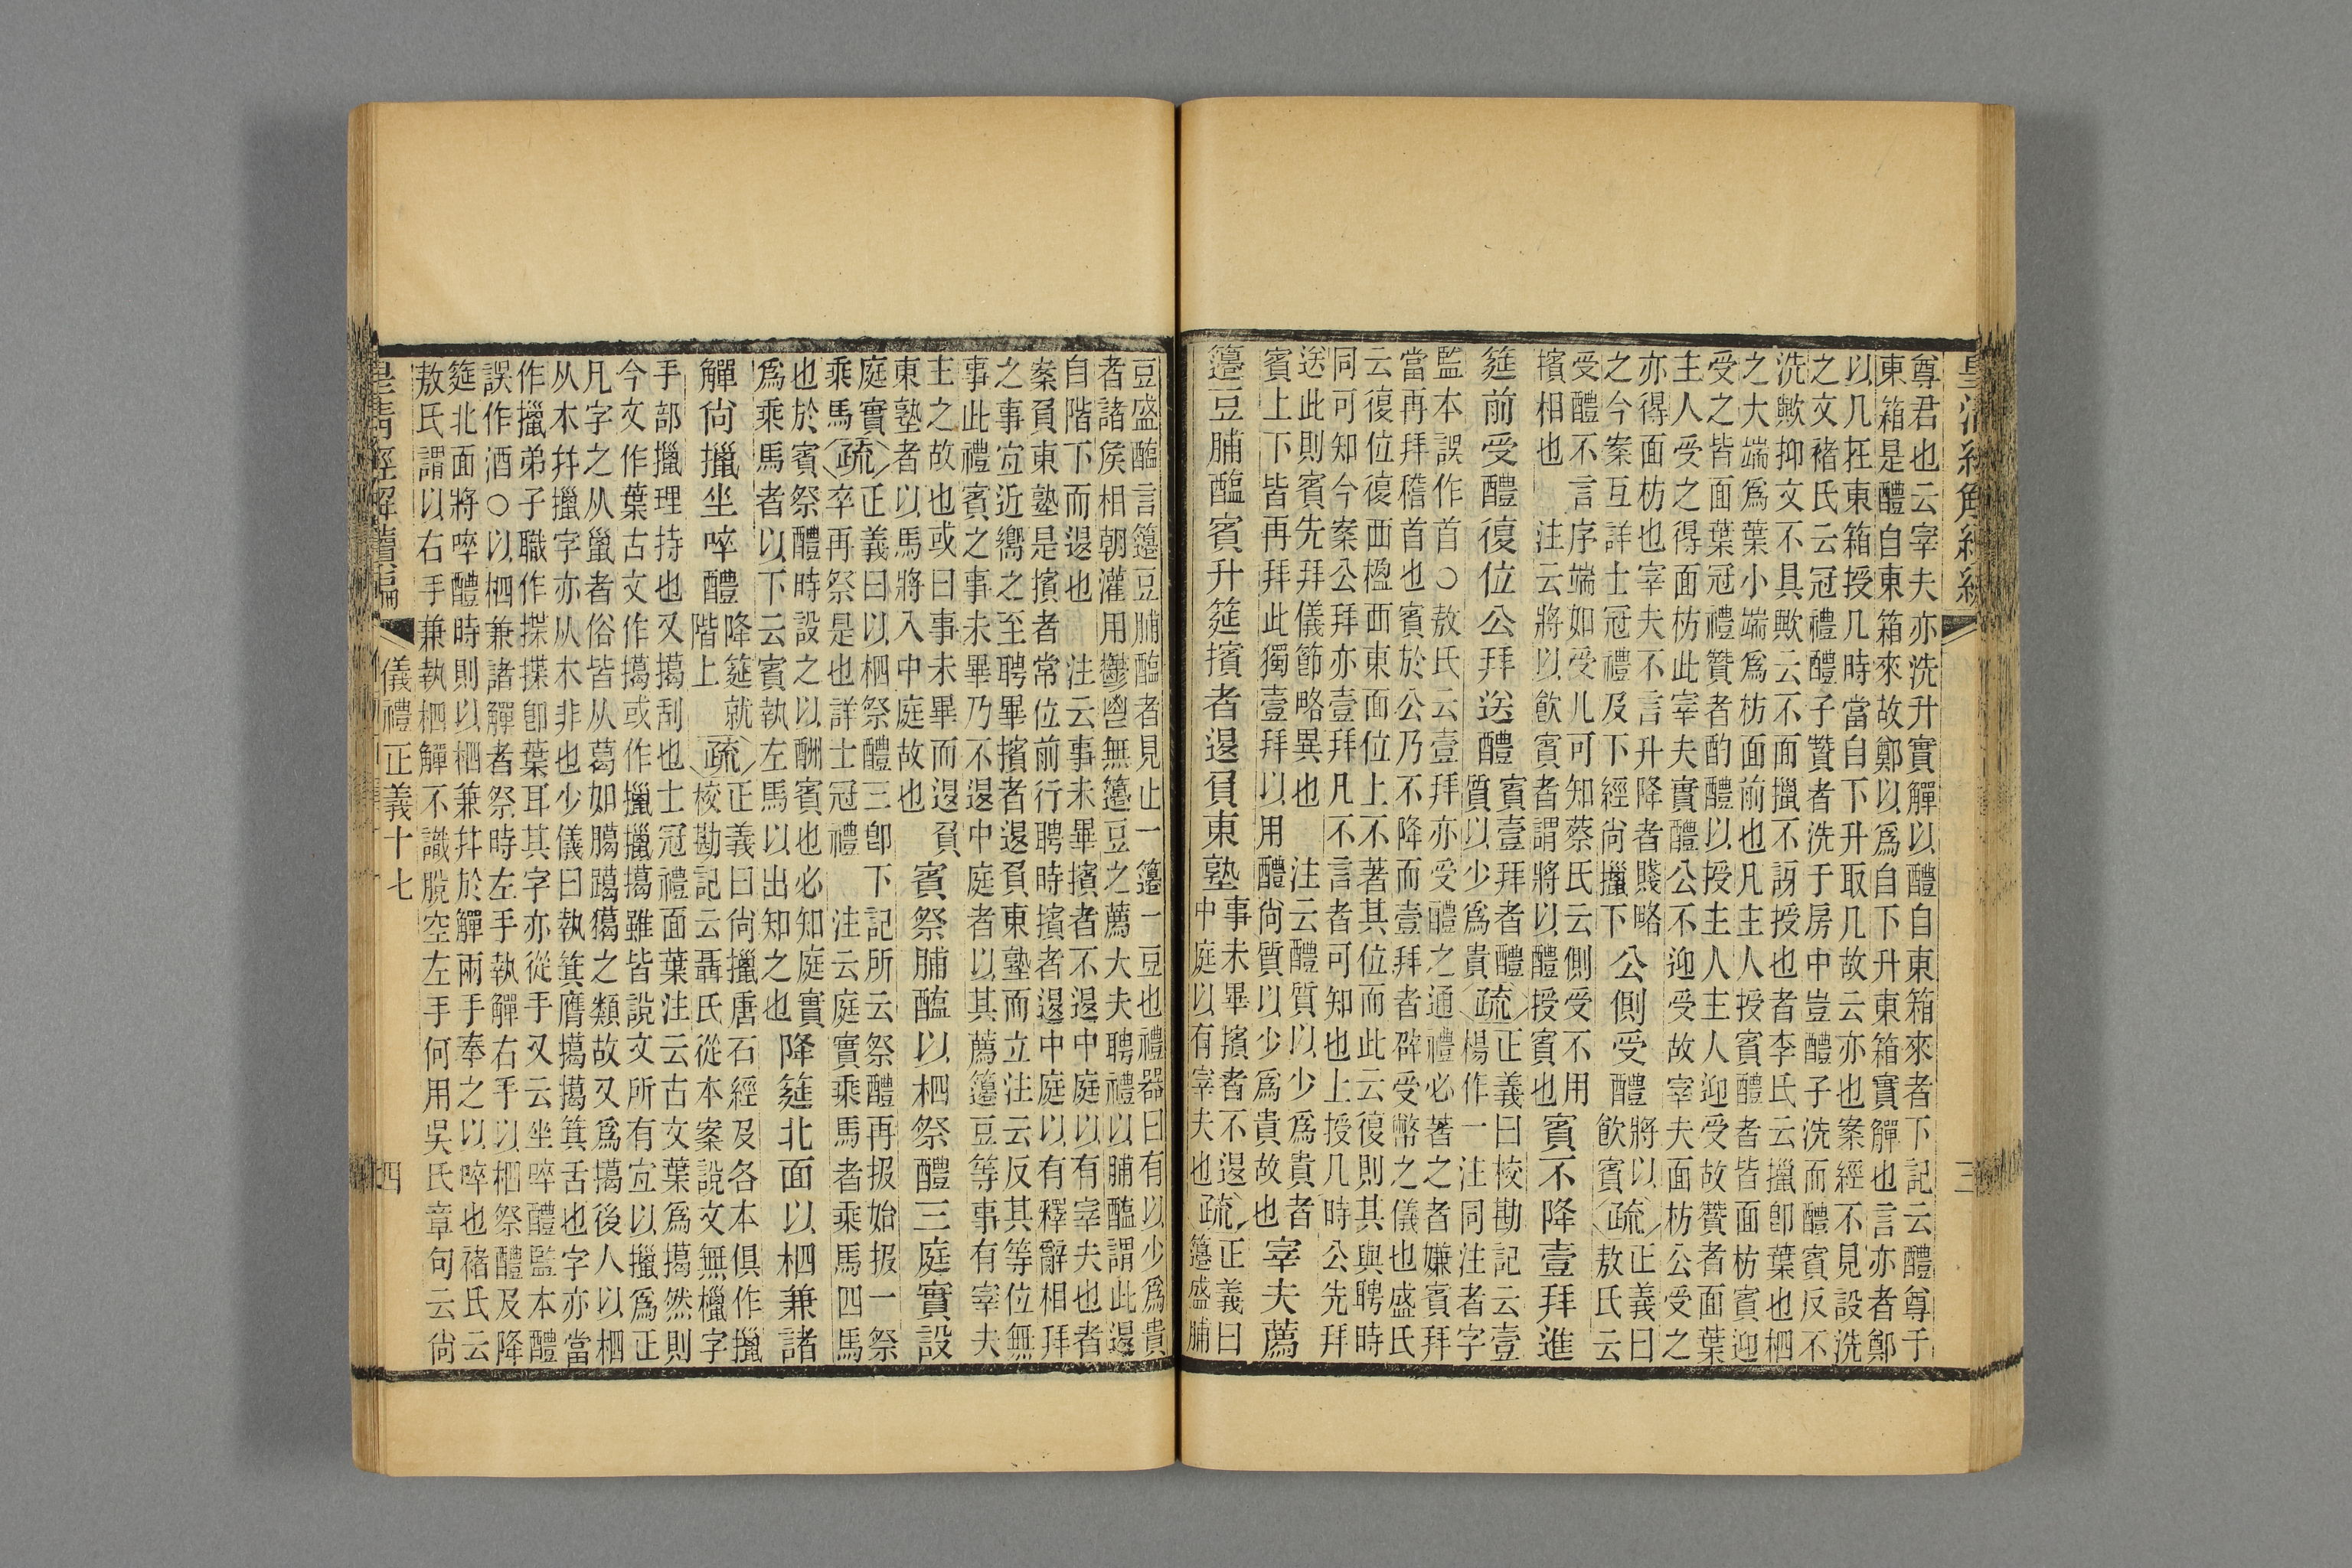 皇清經解續編
三
尊君也云宰夫亦洗升實觶以醴自東箱來者下記云醴尊于
東箱是醴自東箱來故鄭以爲自下升東箱實觶也言亦者鄭
以几在東箱授几時當自下升取几故云亦也案經不見設洗
之文褚氏云冠禮醴子贊者洗于房中豈醴子洗而醴賓反不
洗歟抑文不具歟云不面擸不訝授也者李氏云擸卽葉也柶
之大端爲葉小端爲枋面前也凡主人授賓醴者皆面枋賓迎
受之皆面葉冠禮贊者酌醴以授主人主人迎受故贊者面葉
主人受之得面枋此宰夫實醴公不迎受故宰夫面枋公受之
亦得面枋也宰夫不言升降者賤略
之今案互詳士冠禮及下經尚擸下
公側受醴
將以
飮賓
疏
正義曰
敖氏云
受醴不言序端如受几可知蔡氏云側受不用
擯相也　注云將以飮賓者謂將以醴授賓也
賓不降壹拜進
筵前受醴復位公拜送醴
賓壹拜者醴
質以少爲貴
疏
正義曰校勘記云壹
楊作一注同注者字
監本誤作首○敖氏云壹拜亦受醴之通禮必著之者嫌賓拜
當再拜稽首也賓於公乃不降而壹拜者辟受幣之儀也盛氏
云復位復西楹西東面位上不著其位而此云復則其與聘時
同可知今案公拜亦壹拜凡不言者可知也上授几時公先拜
送此則賓先拜儀節略異也　注云醴質以少爲貴者
賓上下皆再拜此獨壹拜以用醴尚質以少爲貴故也
宰夫薦
籩豆脯醢賓升筵擯者退負東塾
事未畢擯者不退
中庭以有宰夫也
疏
正義曰
籩盛脯
豆盛醢言籩豆脯醢者見止一籩一豆也禮器曰有以少爲貴
者諸侯相朝灌用鬱鬯無籩豆之薦大夫聘禮以脯醢謂此退
自階下而退也　注云事未畢擯者不退中庭以有宰夫也者
案負東塾是擯者常位前行聘時擯者退中庭以有釋辭相拜
之事宜近嚮之至聘畢擯者退負東塾而立注云反其等位無
事此禮賓之事未畢乃不退中庭者以其薦籩豆等事有宰夫
主之故也或曰事未畢而退負
東塾者以馬將入中庭故也
賓祭脯醢以柶祭醴三庭實設
庭實
乘馬
疏
正義曰以柶祭醴三卽下記所云祭醴再扱始扱一祭
卒再祭是也詳士冠禮　注云庭實乘馬者乘馬四馬
也於賓祭醴時設之以酬賓也必知庭實
爲乘馬者以下云賓執左馬以出知之也
降筵北面以柶兼諸
觶尚擸坐啐醴
降筵就
階上
疏
正義曰尚擸唐石經及各本俱作擸
校勘記云聶氏從木案說文無㯿字
手部擸理持也又擖刮也士冠禮面葉注云古文葉爲擖然則
今文作葉古文作擖或作擸擸擖雖皆說文所有宜以擸爲正
凡字之从巤者俗皆从葛如臈躐獦之類故又爲擖後人以柶
从木幷擸字亦从木非也少儀曰執箕膺擖擖箕舌也字亦當
作擸弟子職作揲揲卽葉耳其字亦從手又云坐啐醴監本醴
誤作酒○以柶兼諸觶者祭時左手執觶右手以柶祭醴及降
筵北面將啐醴時則以柶兼幷於觶兩手奉之以啐也褚氏云
敖氏謂以右手兼執柶觶不識脫空左手何用吳氏章句云尚
皇清經解續編
儀禮正義十七
四